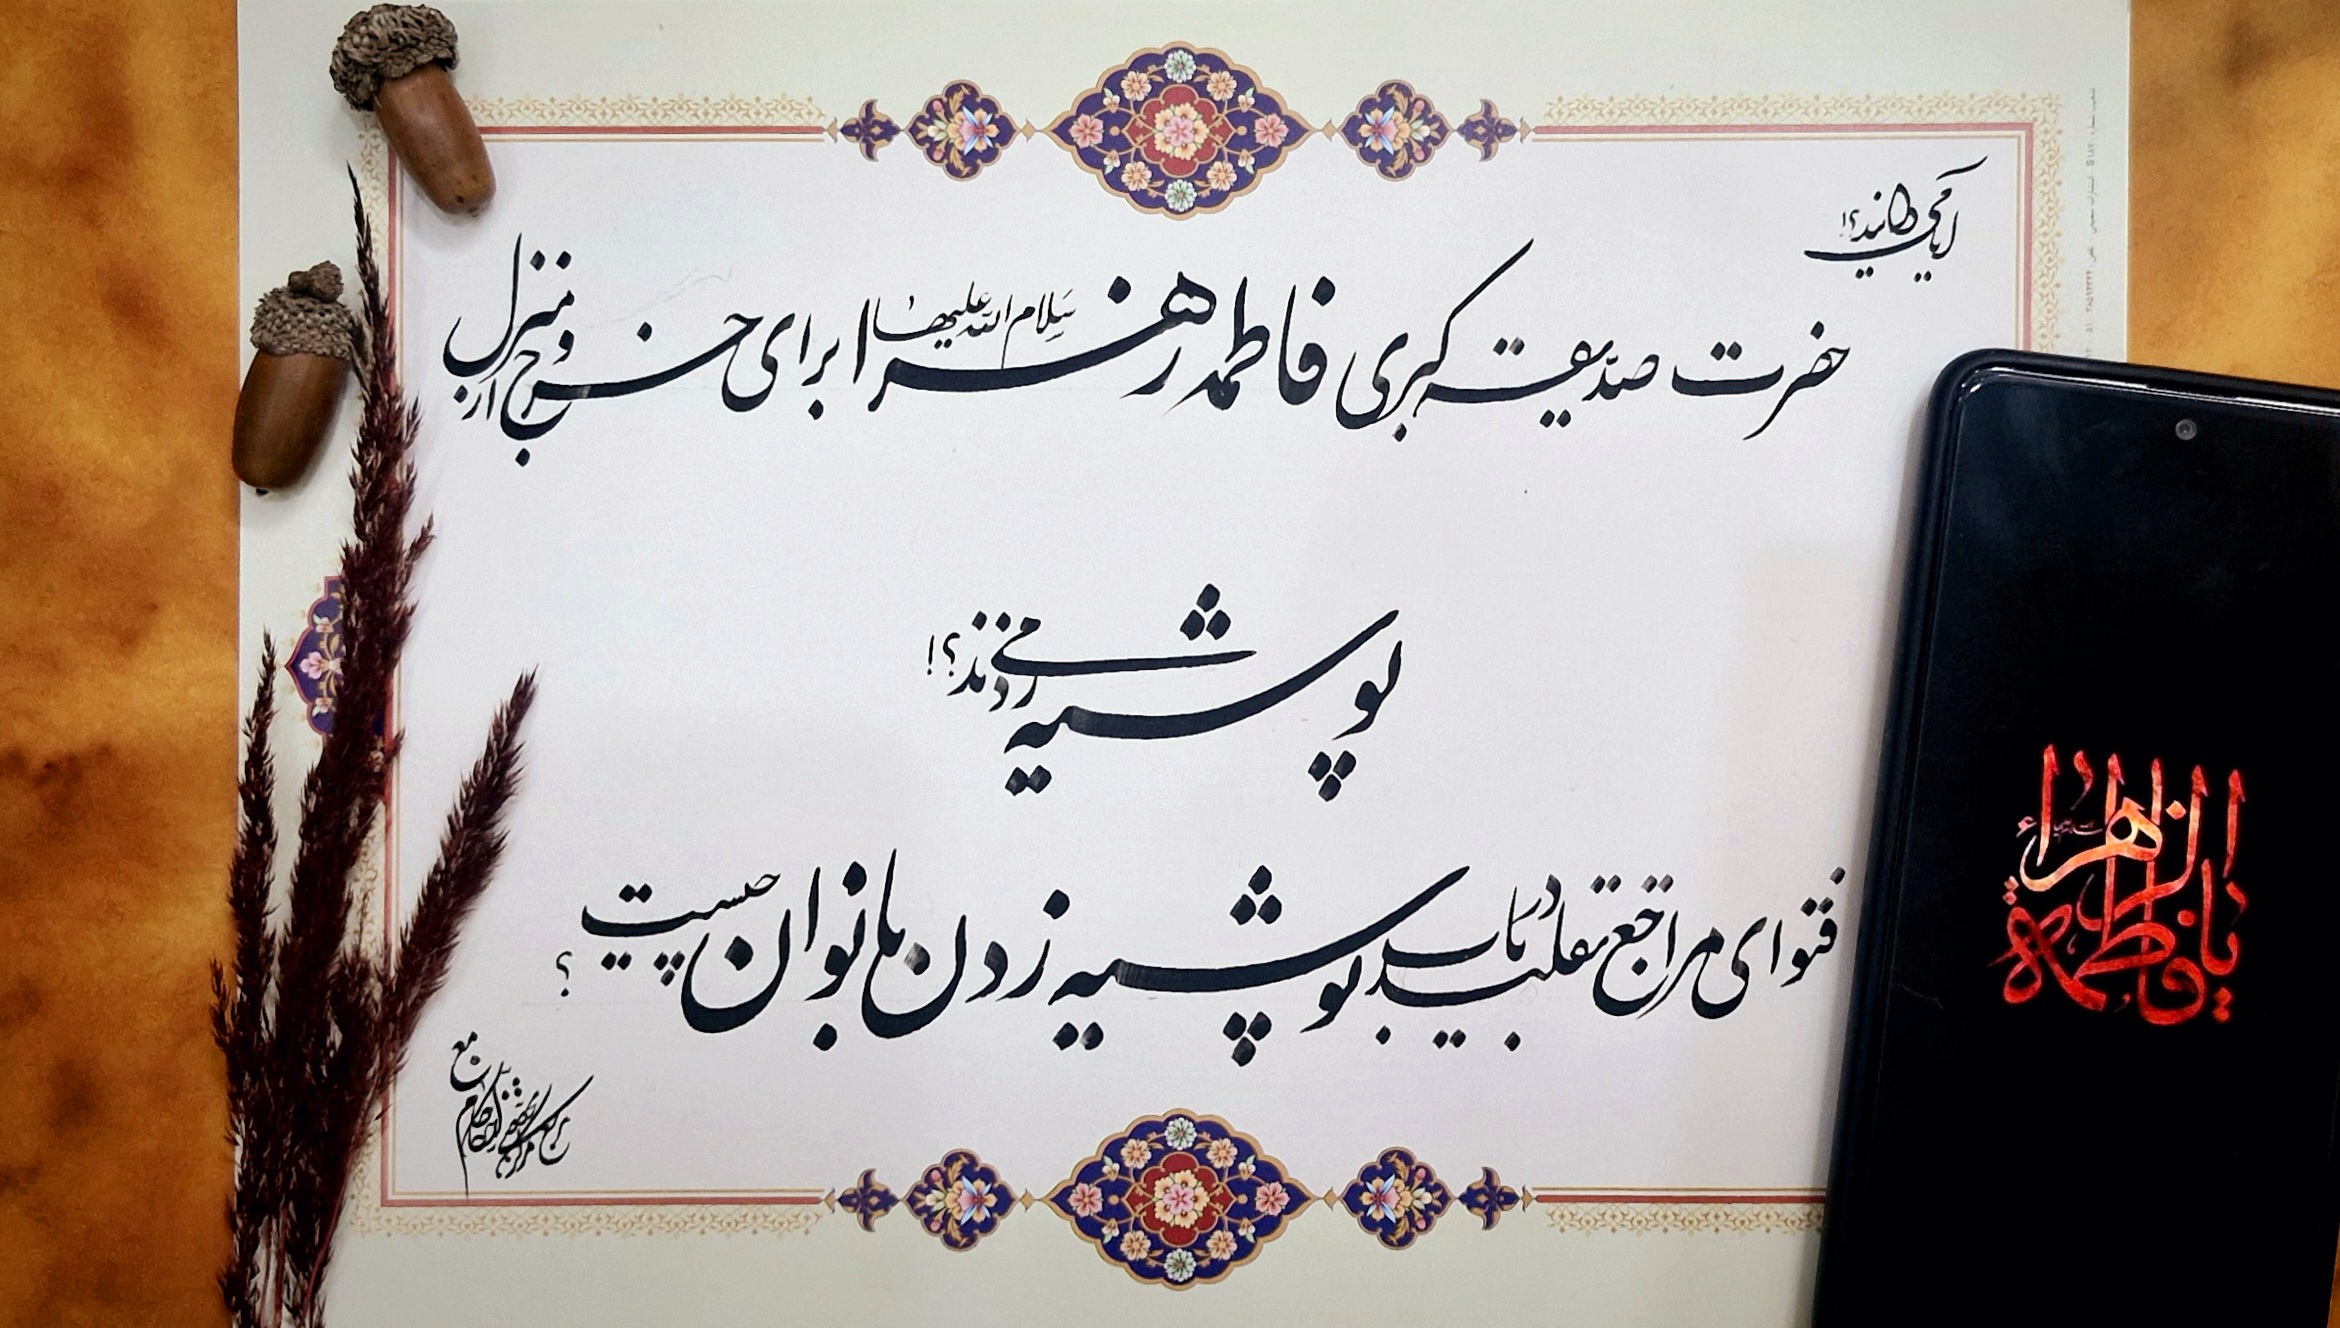 آیا می‌دانید؟!
حضرت صدّیقه کبری فاطمه زهرا سلام الله علیها برای خروج از منزل
پوشیه می‌زدند؟!
فتوای مراجع تقلید در باب پوشیه زدن بانوان چیست؟
یا فاطمة الزهراء